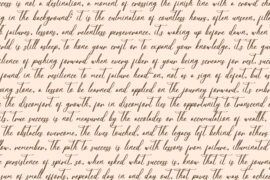 ccess is not a destination, a moment of crossing the finish line with a crowd che
g in the background. it is the culmination of countless hours, often unseen, fille
failures, lessons, and relentless perseverance. it's waking up before dawn, when
orld is still asleep, to hone your craft or to expand your knowledge. it's the qui
silence of pushing forward when every fiber of your being screams for rest. succe
found in the resilience to meet failure head-on, not as a sign of defeat, but as
ping stone, a lesson to be learned and applied on the journey forward. it's embra
the discomfort of growth, for in discomfort lies the opportunity to transcend o
its. true success is not measured by the accolades or the accumulation of wealth,
the obstacles overcome, the lives touched, and the legacy left behind for others
low. remember, the path to success is lined with lessons from failure, illuminated
e persistence of spirit. so, when asked what success is, know that it is the journe
sum of small efforts, repeated day in and day out, that paves the way to achie